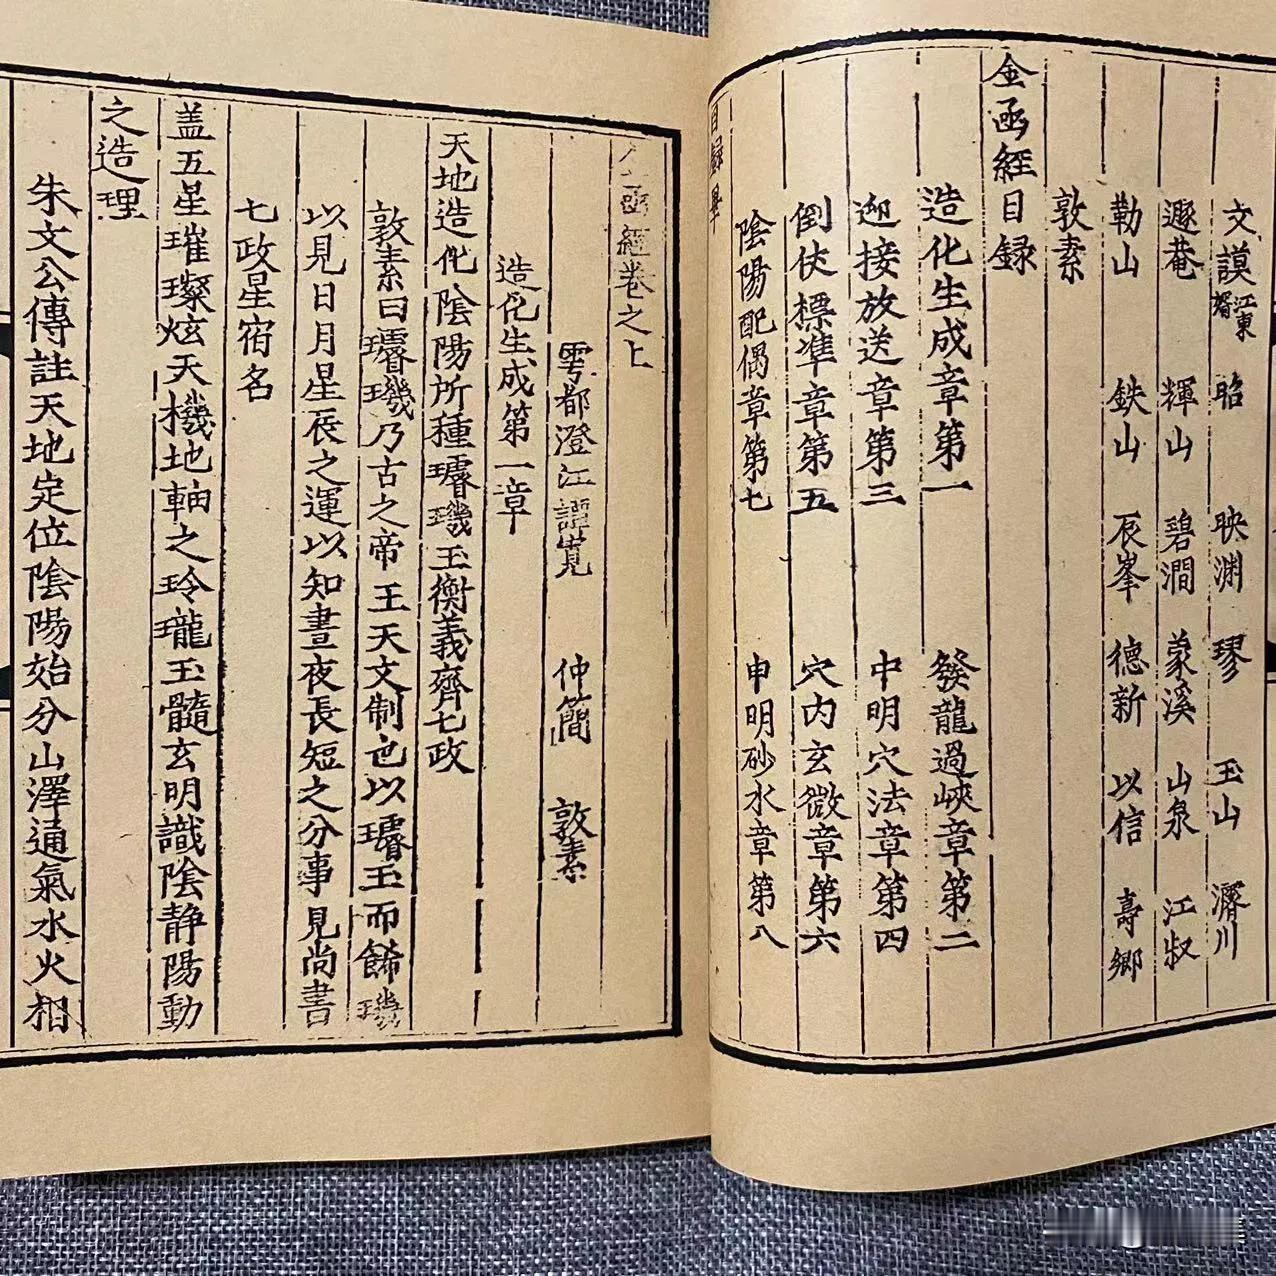 文謨江東婿 昭 映渊 璆 玉山 濟川
遯菴 輝山 碧澗 蒙溪 山泉 江叔
勒山 鉄山 辰峯 德新 以信 壽郷
敦素
金函經目録
造化生成章第一 發龍過峽章第二
迎接放送章第三 中明穴法章第四
倒伏標準章第五 穴内玄微章第六
陰陽配偶章第七 申明砂水章第八
目録畢
函經卷之上
雩都澄江譚寛 仲簡 敦素
造化生成第一章
天地造化陰陽所種璿璣玉衡義齊七政
敦素曰璿璣乃古之帝王天文制也以璿玉而餙璣
以見日月星辰之運以知晝夜長短之分事見尚書
七政星宿名
盖五星璀璨炫天機地軸之玲瓏玉髓玄明識陰静陽動
之造理
朱文公傳註天地定位陰陽始分山澤通氣水火相